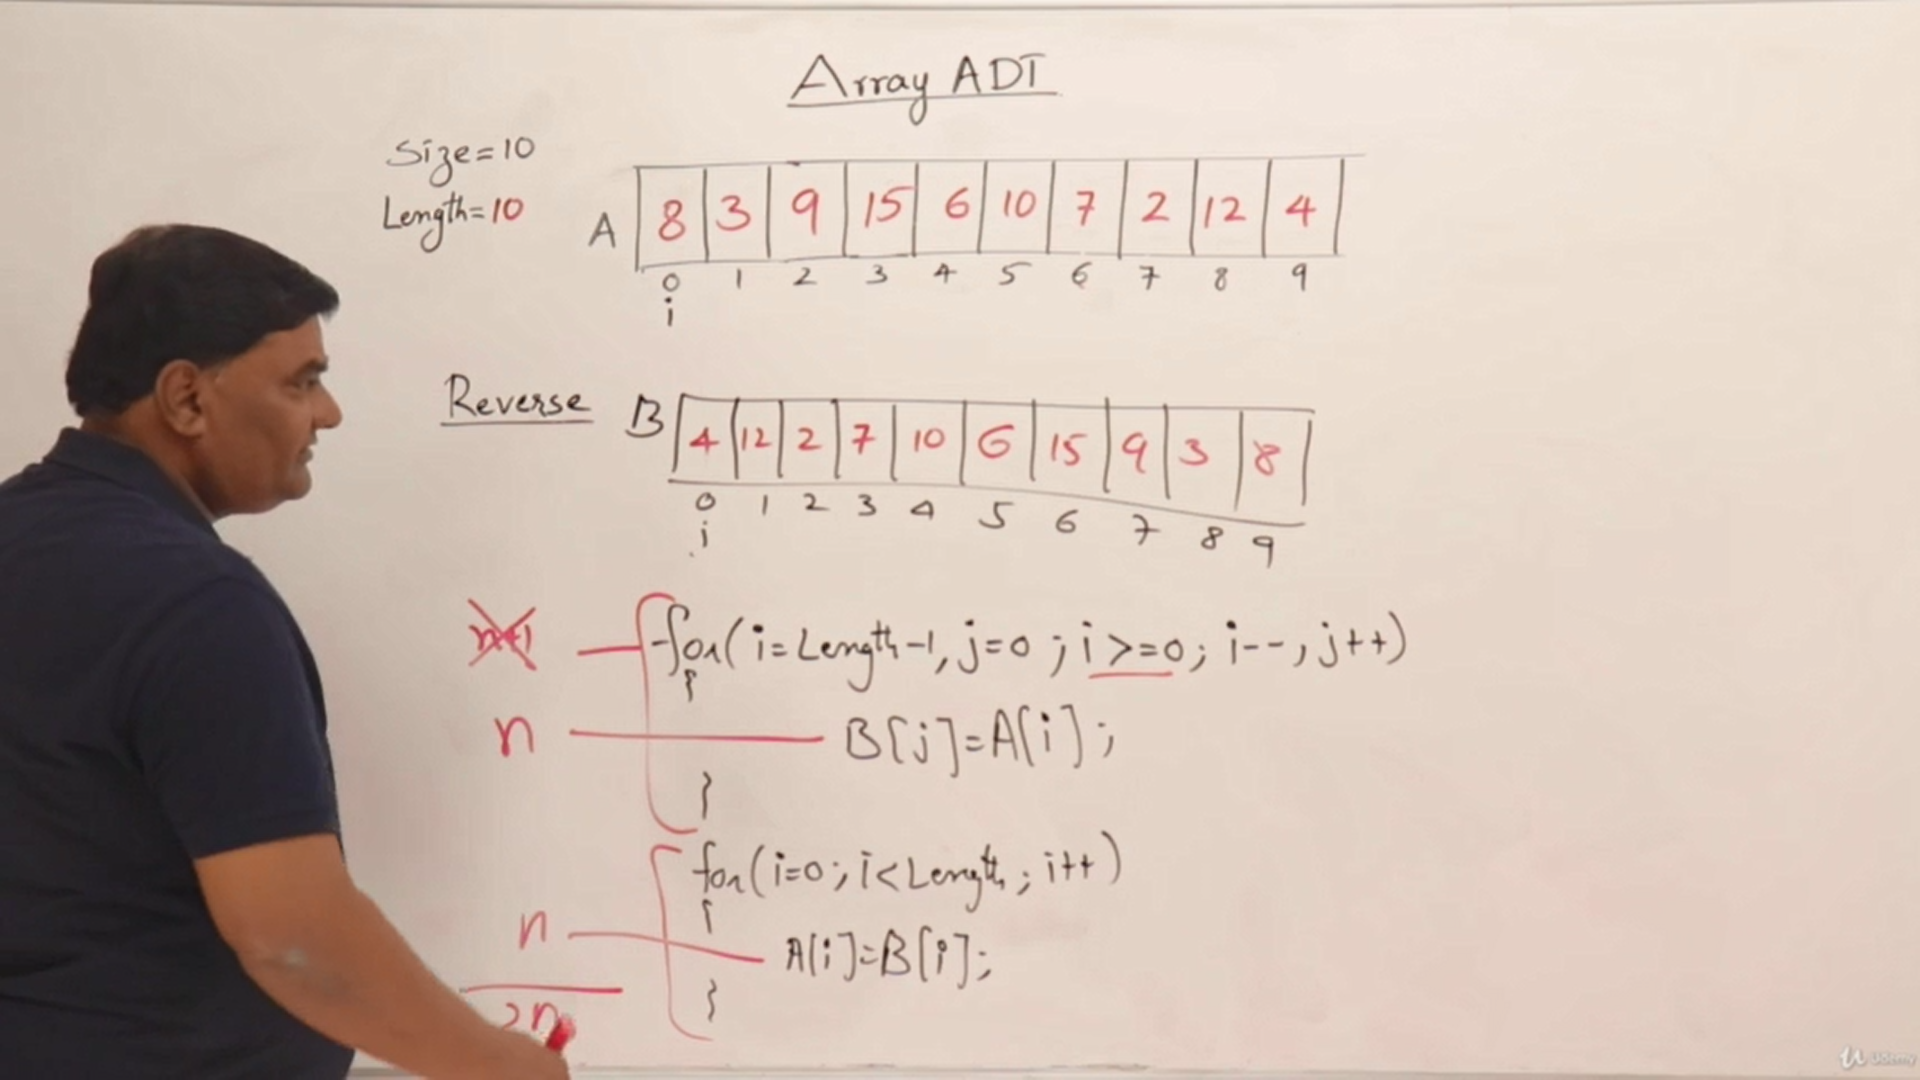 Array ADT
Size=10
Length=10
A 8 3 9 15 6 10 7 2 12 4
0 1 2 3 4 5 6 7 8 9
i
Reverse B 4 12 2 7 10 6 15 9 3 8
0 1 2 3 4 5 6 7 8 9
i
n+1 for(i=Length-1, j=0; i>=0; i--, j++)
{
n B[j]=A[i];
}
for(i=0; i<Length; i++)
{
n A[i]=B[i];
}
2n
udemy